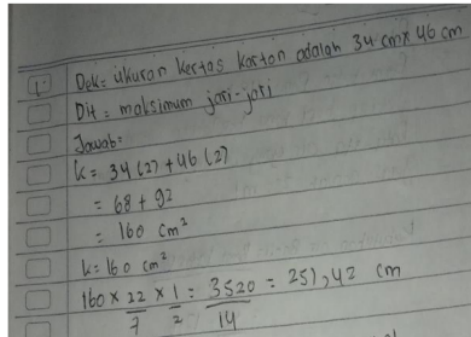 1. Dek = ukuran kertas karton adalah 34 cm x 46 cm
Dit = maksimum jari-jari
Jawab =
k = 34 (2) + 46 (2)
= 68 + 92
= 160 cm²
k = 160 cm²
160 x 22/7 x 1/2 = 3520/14 = 251,42 cm